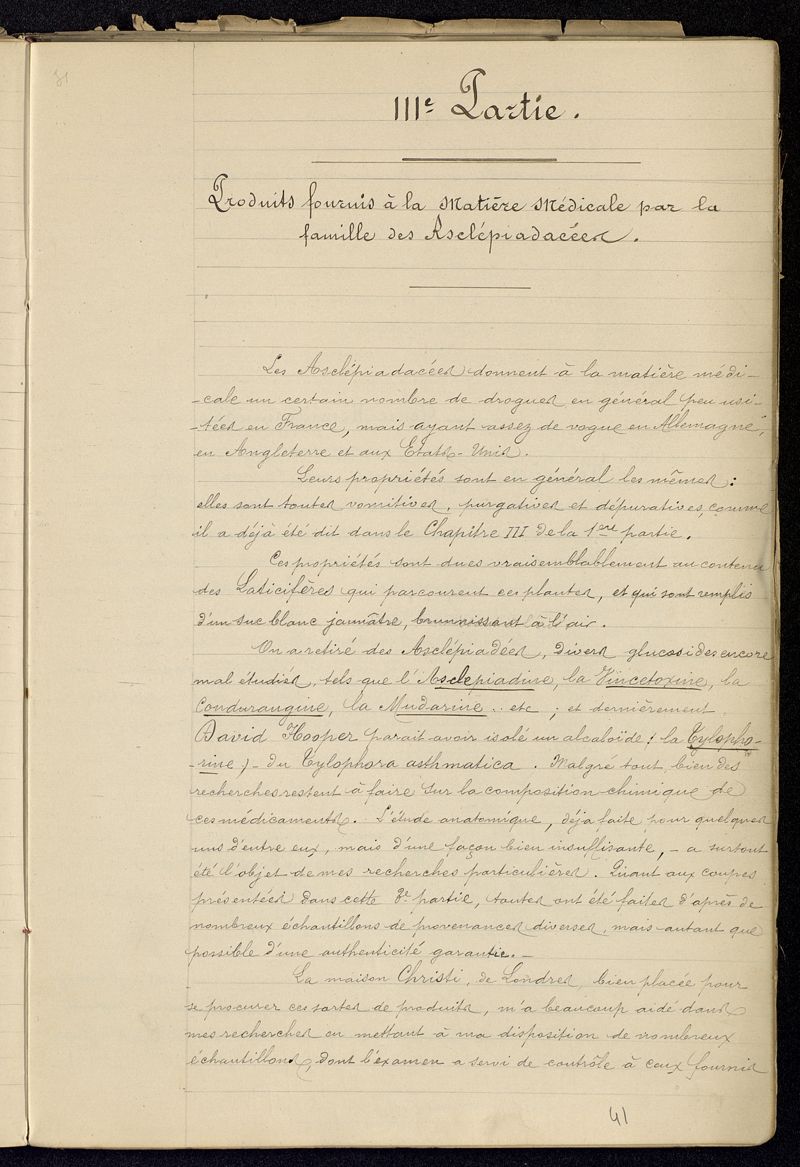 31
IIIe Partie.
Produits fournis à la Matière Médicale par la
famille des Asclépiadacées.
Les Asclépiadacées donnent à la matière médi-
-cale un certain nombre de drogues en général peu usi-
-tées en France, mais ayant assez de vogue en Allemagne,
en Angleterre et aux Etats-Unis.
Leurs propriétés sont en général les mêmes :
elles sont toutes vomitives, purgatives et dépuratives, comme
il a déjà été dit dans le Chapitre III de la 1ère partie.
Ces propriétés sont dues vraisemblablement au contenu
des Laticifères qui parcourent ces plantes, et qui sont remplis
d'un suc blanc jaunâtre, brunissant à l'air.
On a retiré des Asclépiadées, divers glucosides encore
mal étudiés, tels que l'Asclepiadine, la Vincetoxine, la
Condurangine, la Mudarine .. etc ; et dernièrement
David Hooper parait avoir isolé un alcaloïde ( la Tylopho-
-rine ) - du Tylophora asthmatica. Malgré tout, bien des
recherches restent à faire sur la composition chimique de
ces médicaments. L'étude anatomique, déjà faite pour quelques
uns d'entre eux, mais d'une façon bien insuffisante, - a surtout
été l'objet de mes recherches particulières. Quant aux coupes
présentées dans cette 3e partie, toutes ont été faites d'après de
nombreux échantillons de provenances diverses, mais autant que
possible d'une authenticité garantie. -
La maison Christi, de Londres, bien placée pour
se procurer ces sortes de produits, m'a beaucoup aidé dans
mes recherches en mettant à ma disposition de nombreux
échantillons, dont l'examen a servi de contrôle à ceux fournis
41